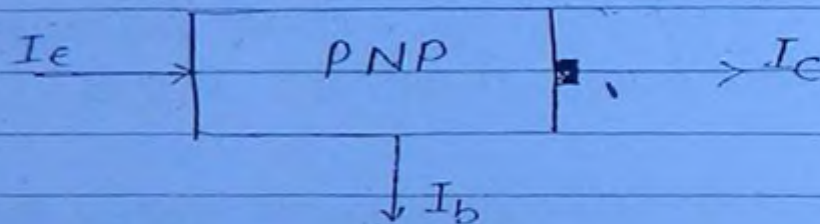 Iε PNP Ic
Ib